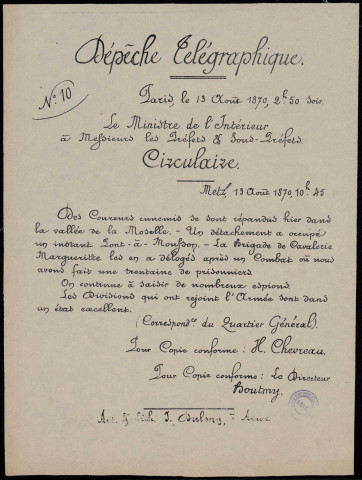 Dépêche Télégraphique.
N° 10
Paris, le 13 Août 1870, 2h 50 soir.
Le Ministre de l'Intérieur
à Messieurs les Préfets & Sous-Préfets.
Circulaire.
Metz, 13 Août 1870, 10h 45
Des Coureurs ennemis se sont répandus hier dans
la vallée de la Moselle. - Un détachement a occupé
un instant Pont-à-Mousson. - La Brigade de Cavalerie
Margueritte les en a délogés après un Combat où nous
avons fait une trentaine de prisonniers
On continue à saisir de nombreux espions.
Les Divisions qui ont rejoint l'Armée sont dans
un état excellent.
(Correspondce du Quartier Général).
Pour Copie conforme : H. Chevreau.
Pour Copie conforme : Le Directeur
Boutmy.